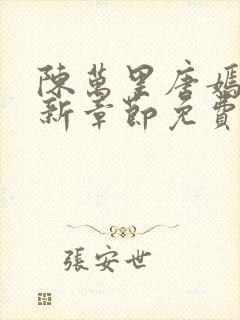 陳萬里唐嫣
新章節免費
張安世